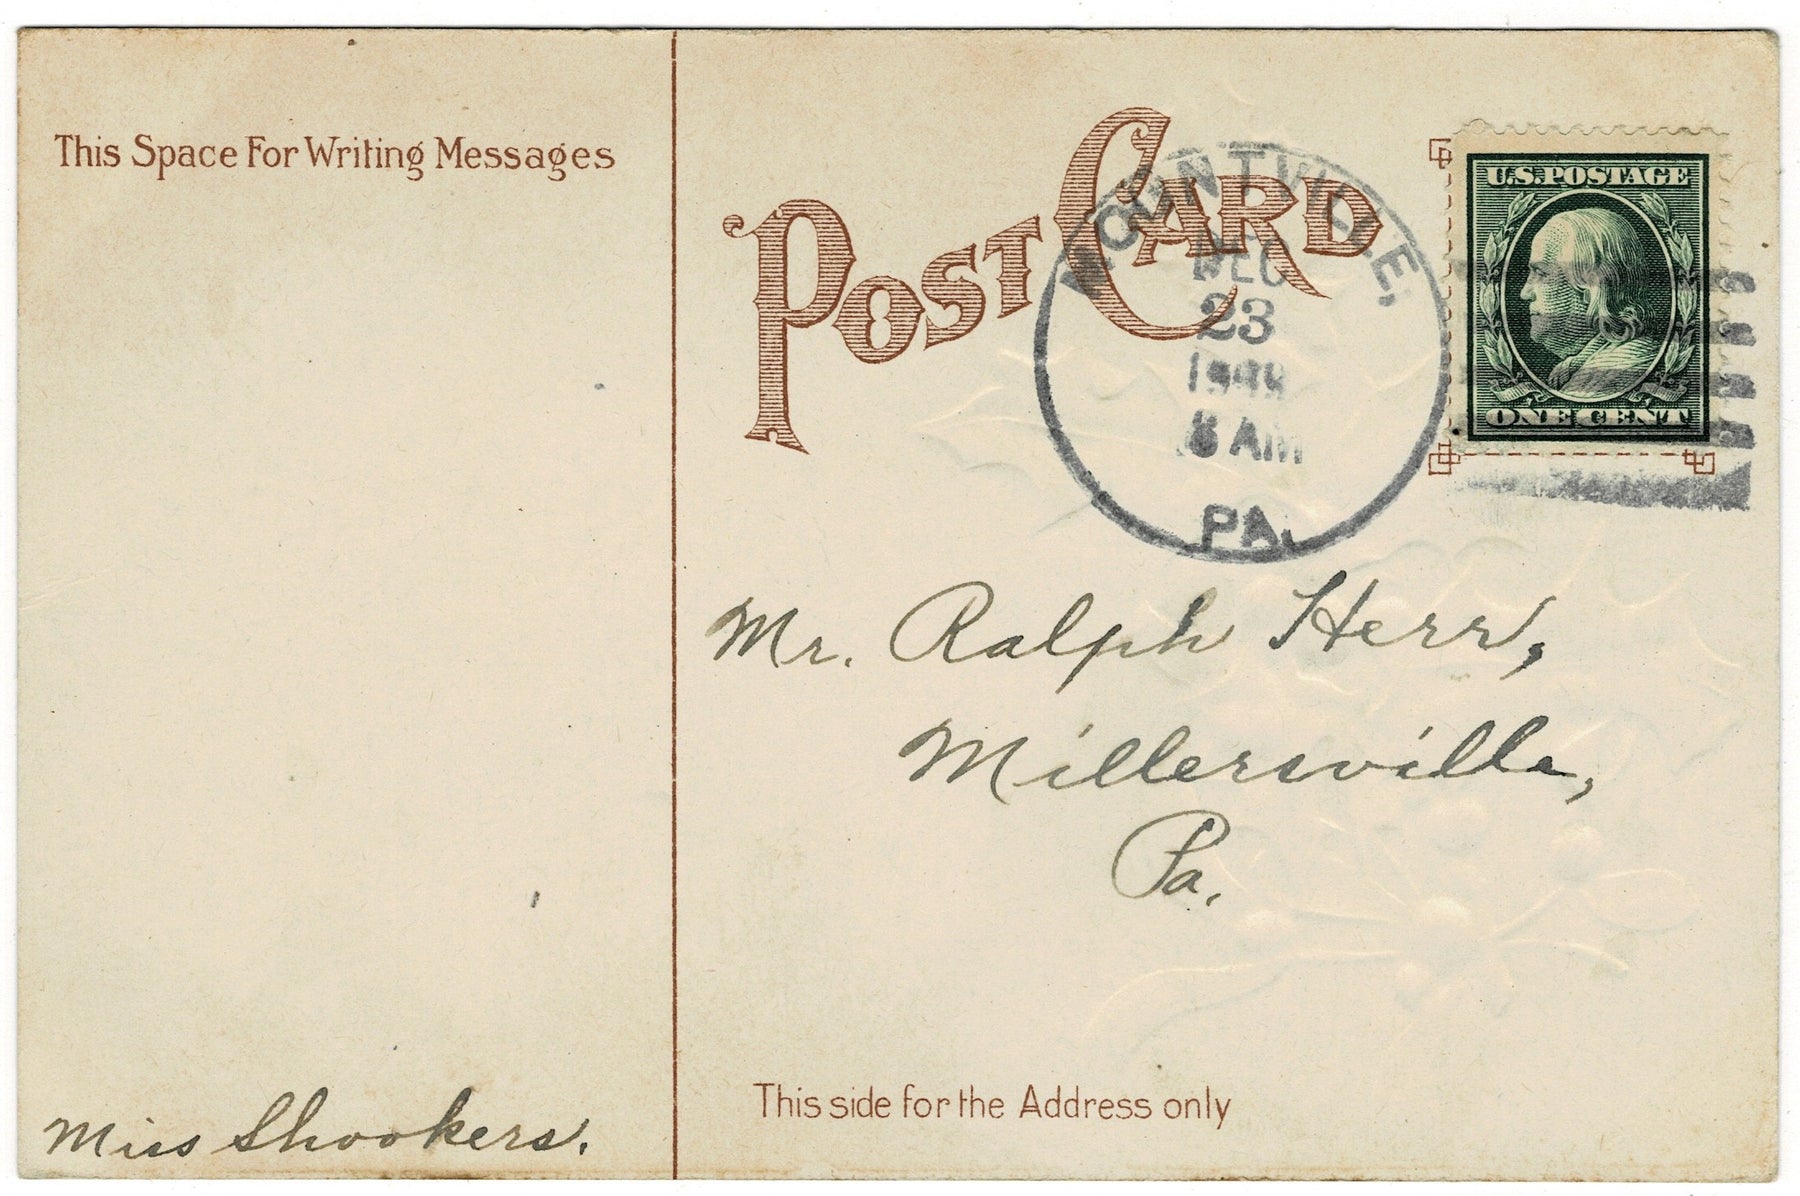 This Space For Writing Messages
POST CARD
U.S. POSTAGE
ONE CENT
MOUNTVILLE,
DEC
23
AM
PA.
Mr. Ralph Herr,
Millersville,
Pa.
This side for the Address only
Miss Shookers.